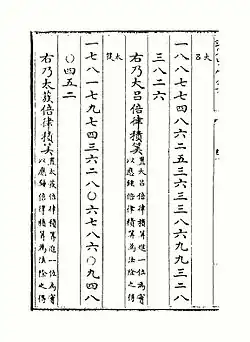 大吕
一八八七七四八六二五三六三三八六九九三二八
三八二六
右乃大吕倍律積筭
置大吕倍律積筭進一位為實
以應鍾倍律積筭為法除之得
太蔟
一七八一七九七四三六二八〇六七八六〇九四八
〇四五二
右乃太蔟倍律積筭
置太蔟倍律積筭進一位為實
以應鍾倍律積筭為法除之得